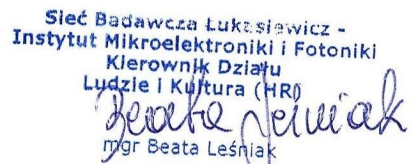 Sieć Badawcza Łukasiewicz -
Instytut Mikroelektroniki i Fotoniki
Kierownik Działu
Ludzie i Kultura (HR)
Beata Leśniak
mgr Beata Leśniak